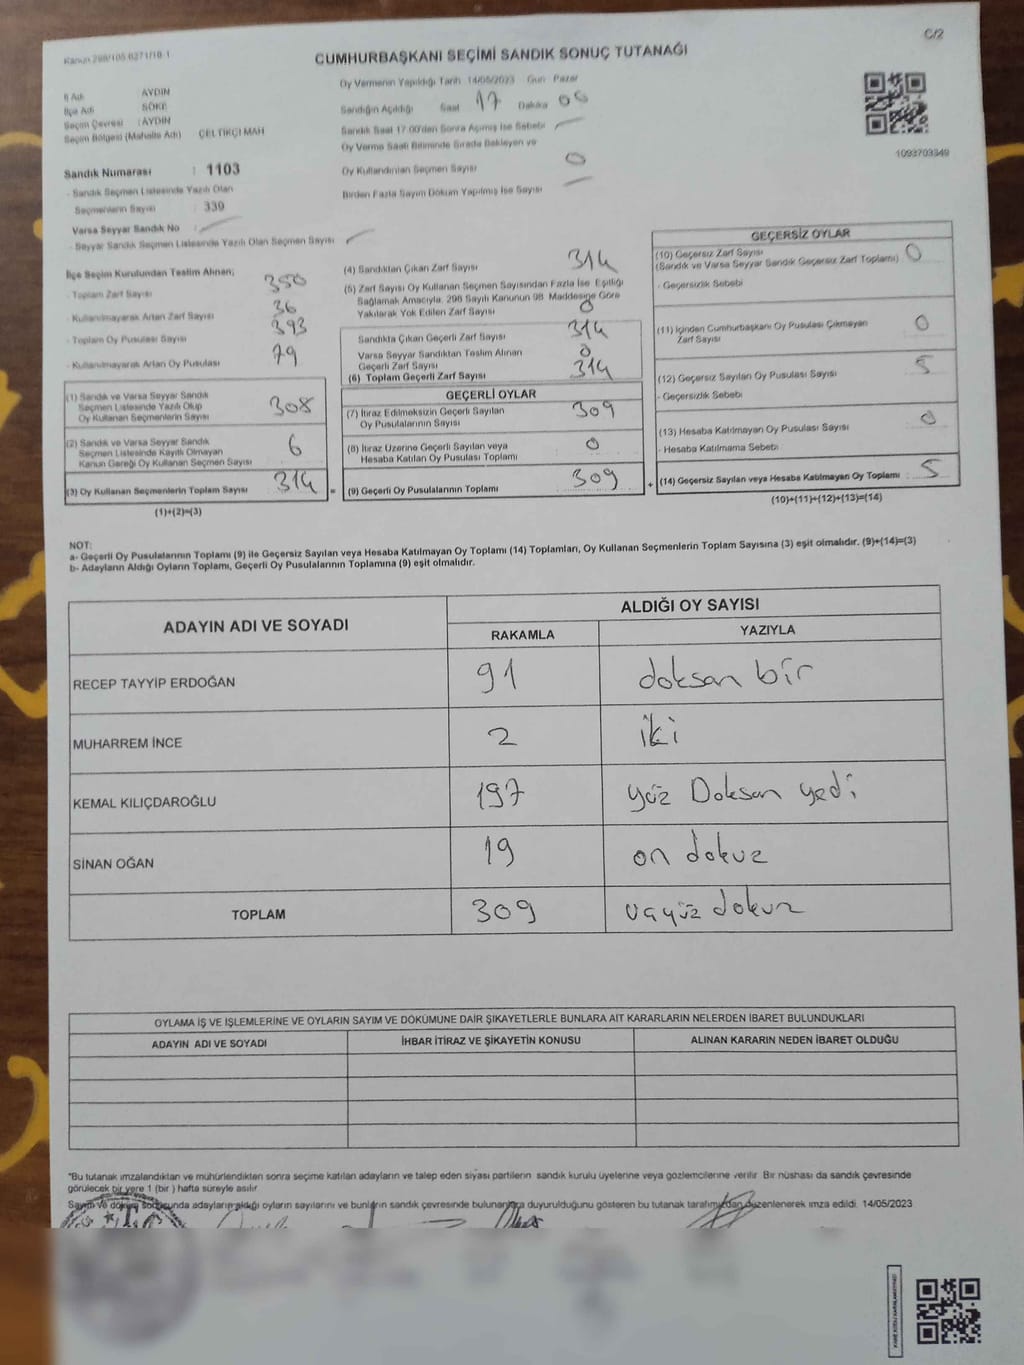 Kanun 298/105-6271/18-1
C/2
CUMHURBAŞKANI SEÇİMİ SANDIK SONUÇ TUTANAĞI
İl Adı AYDIN
İlçe Adı SÖKE
Seçim Çevresi : AYDIN
Seçim Bölgesi (Mahalle Adı) ÇELTİKÇİ MAH
Sandık Numarası : 1103
- Sandık Seçmen Listesinde Yazılı Olan
Seçmenlerin Sayısı : 339
Varsa Seyyar Sandık No
- Seyyar Sandık Seçmen Listesinde Yazılı Olan Seçmen Sayısı
Oy Vermenin Yapıldığı Tarih 14/05/2023 Gün Pazar
Sandığın Açıldığı Saat 17 Dakika 05
Sandık Saat 17.00'den Sonra Açılmış İse Sebebi
Oy Verme Saati Bitiminde Sırada Bekleyen ve
Oy Kullandırılan Seçmen Sayısı 0
Birden Fazla Sayım Döküm Yapılmış İse Sayısı
1093703349
İlçe Seçim Kurulundan Teslim Alınan;
- Toplam Zarf Sayısı 350
- Kullanılmayarak Artan Zarf Sayısı 36
- Toplam Oy Pusulası Sayısı 393
- Kullanılmayarak Artan Oy Pusulası 79
(1) Sandık ve Varsa Seyyar Sandık
Seçmen Listesinde Yazılı Olup
Oy Kullanan Seçmenlerin Sayısı 308
(2) Sandık ve Varsa Seyyar Sandık
Seçmen Listesinde Kayıtlı Olmayan
Kanun Gereği Oy Kullanan Seçmen Sayısı 6
(3) Oy Kullanan Seçmenlerin Toplam Sayısı 314
(1)+(2)=(3)
(4) Sandıktan Çıkan Zarf Sayısı 314
(5) Zarf Sayısı Oy Kullanan Seçmen Sayısından Fazla İse Eşitliği
Sağlamak Amacıyla, 298 Sayılı Kanunun 98. Maddesine Göre
Yakılarak Yok Edilen Zarf Sayısı 0
Sandıkta Çıkan Geçerli Zarf Sayısı 314
Varsa Seyyar Sandıktan Teslim Alınan
Geçerli Zarf Sayısı 0
(6) Toplam Geçerli Zarf Sayısı 314
GEÇERLİ OYLAR
(7) İtiraz Edilmeksizin Geçerli Sayılan
Oy Pusulasının Sayısı 309
(8) İtiraz Üzerine Geçerli Sayılan veya
Hesaba Katılan Oy Pusulası Toplamı 0
= (9) Geçerli Oy Pusulalarının Toplamı 309
GEÇERSİZ OYLAR
(10) Geçersiz Zarf Sayısı
(Sandık ve Varsa Seyyar Sandık Geçersiz Zarf Toplamı) 0
- Geçersizlik Sebebi
(11) İçinden Cumhurbaşkanı Oy Pusulası Çıkmayan
Zarf Sayısı 0
(12) Geçersiz Sayılan Oy Pusulası Sayısı 5
- Geçersizlik Sebebi
(13) Hesaba Katılmayan Oy Pusulası Sayısı 0
- Hesaba Katılmama Sebebi
+ (14) Geçersiz Sayılan veya Hesaba Katılmayan Oy Toplamı 5
(10)+(11)+(12)+(13)=(14)
NOT:
a- Geçerli Oy Pusulalarının Toplamı (9) ile Geçersiz Sayılan veya Hesaba Katılmayan Oy Toplamı (14) Toplamları, Oy Kullanan Seçmenlerin Toplam Sayısına (3) eşit olmalıdır. (9)+(14)=(3)
b- Adayların Aldığı Oyların Toplamı, Geçerli Oy Pusulalarının Toplamına (9) eşit olmalıdır.
ADAYIN ADI VE SOYADI ALDIĞI OY SAYISI
RAKAMLA YAZIYLA
RECEP TAYYİP ERDOĞAN 91 doksan bir
MUHARREM İNCE 2 iki
KEMAL KILIÇDAROĞLU 197 yüz Doksan yedi
SİNAN OĞAN 19 on dokuz
TOPLAM 309 üçyüz dokuz
OYLAMA İŞ VE İŞLEMLERİNE VE OYLARIN SAYIM VE DÖKÜMÜNE DAİR ŞİKAYETLERLE BUNLARA AİT KARARLARIN NELERDEN İBARET BULUNDUKLARI
ADAYIN ADI VE SOYADI İHBAR İTİRAZ VE ŞİKAYETİN KONUSU ALINAN KARARIN NEDEN İBARET OLDUĞU
"Bu tutanak imzalandıktan ve mühürlendikten sonra seçime katılan adayların ve talep eden siyasi partilerin sandık kurulu üyelerine veya gözlemcilerine verilir. Bir nüshası da sandık çevresinde
görülecek bir yere 1 (bir ) hafta süreyle asılır.
Sayım ve döküm sonucunda adayların aldığı oyların sayılarını ve bunların sandık çevresinde bulunanlara duyurulduğunu gösteren bu tutanak tarafımızdan düzenlenerek imza edildi. 14/05/2023